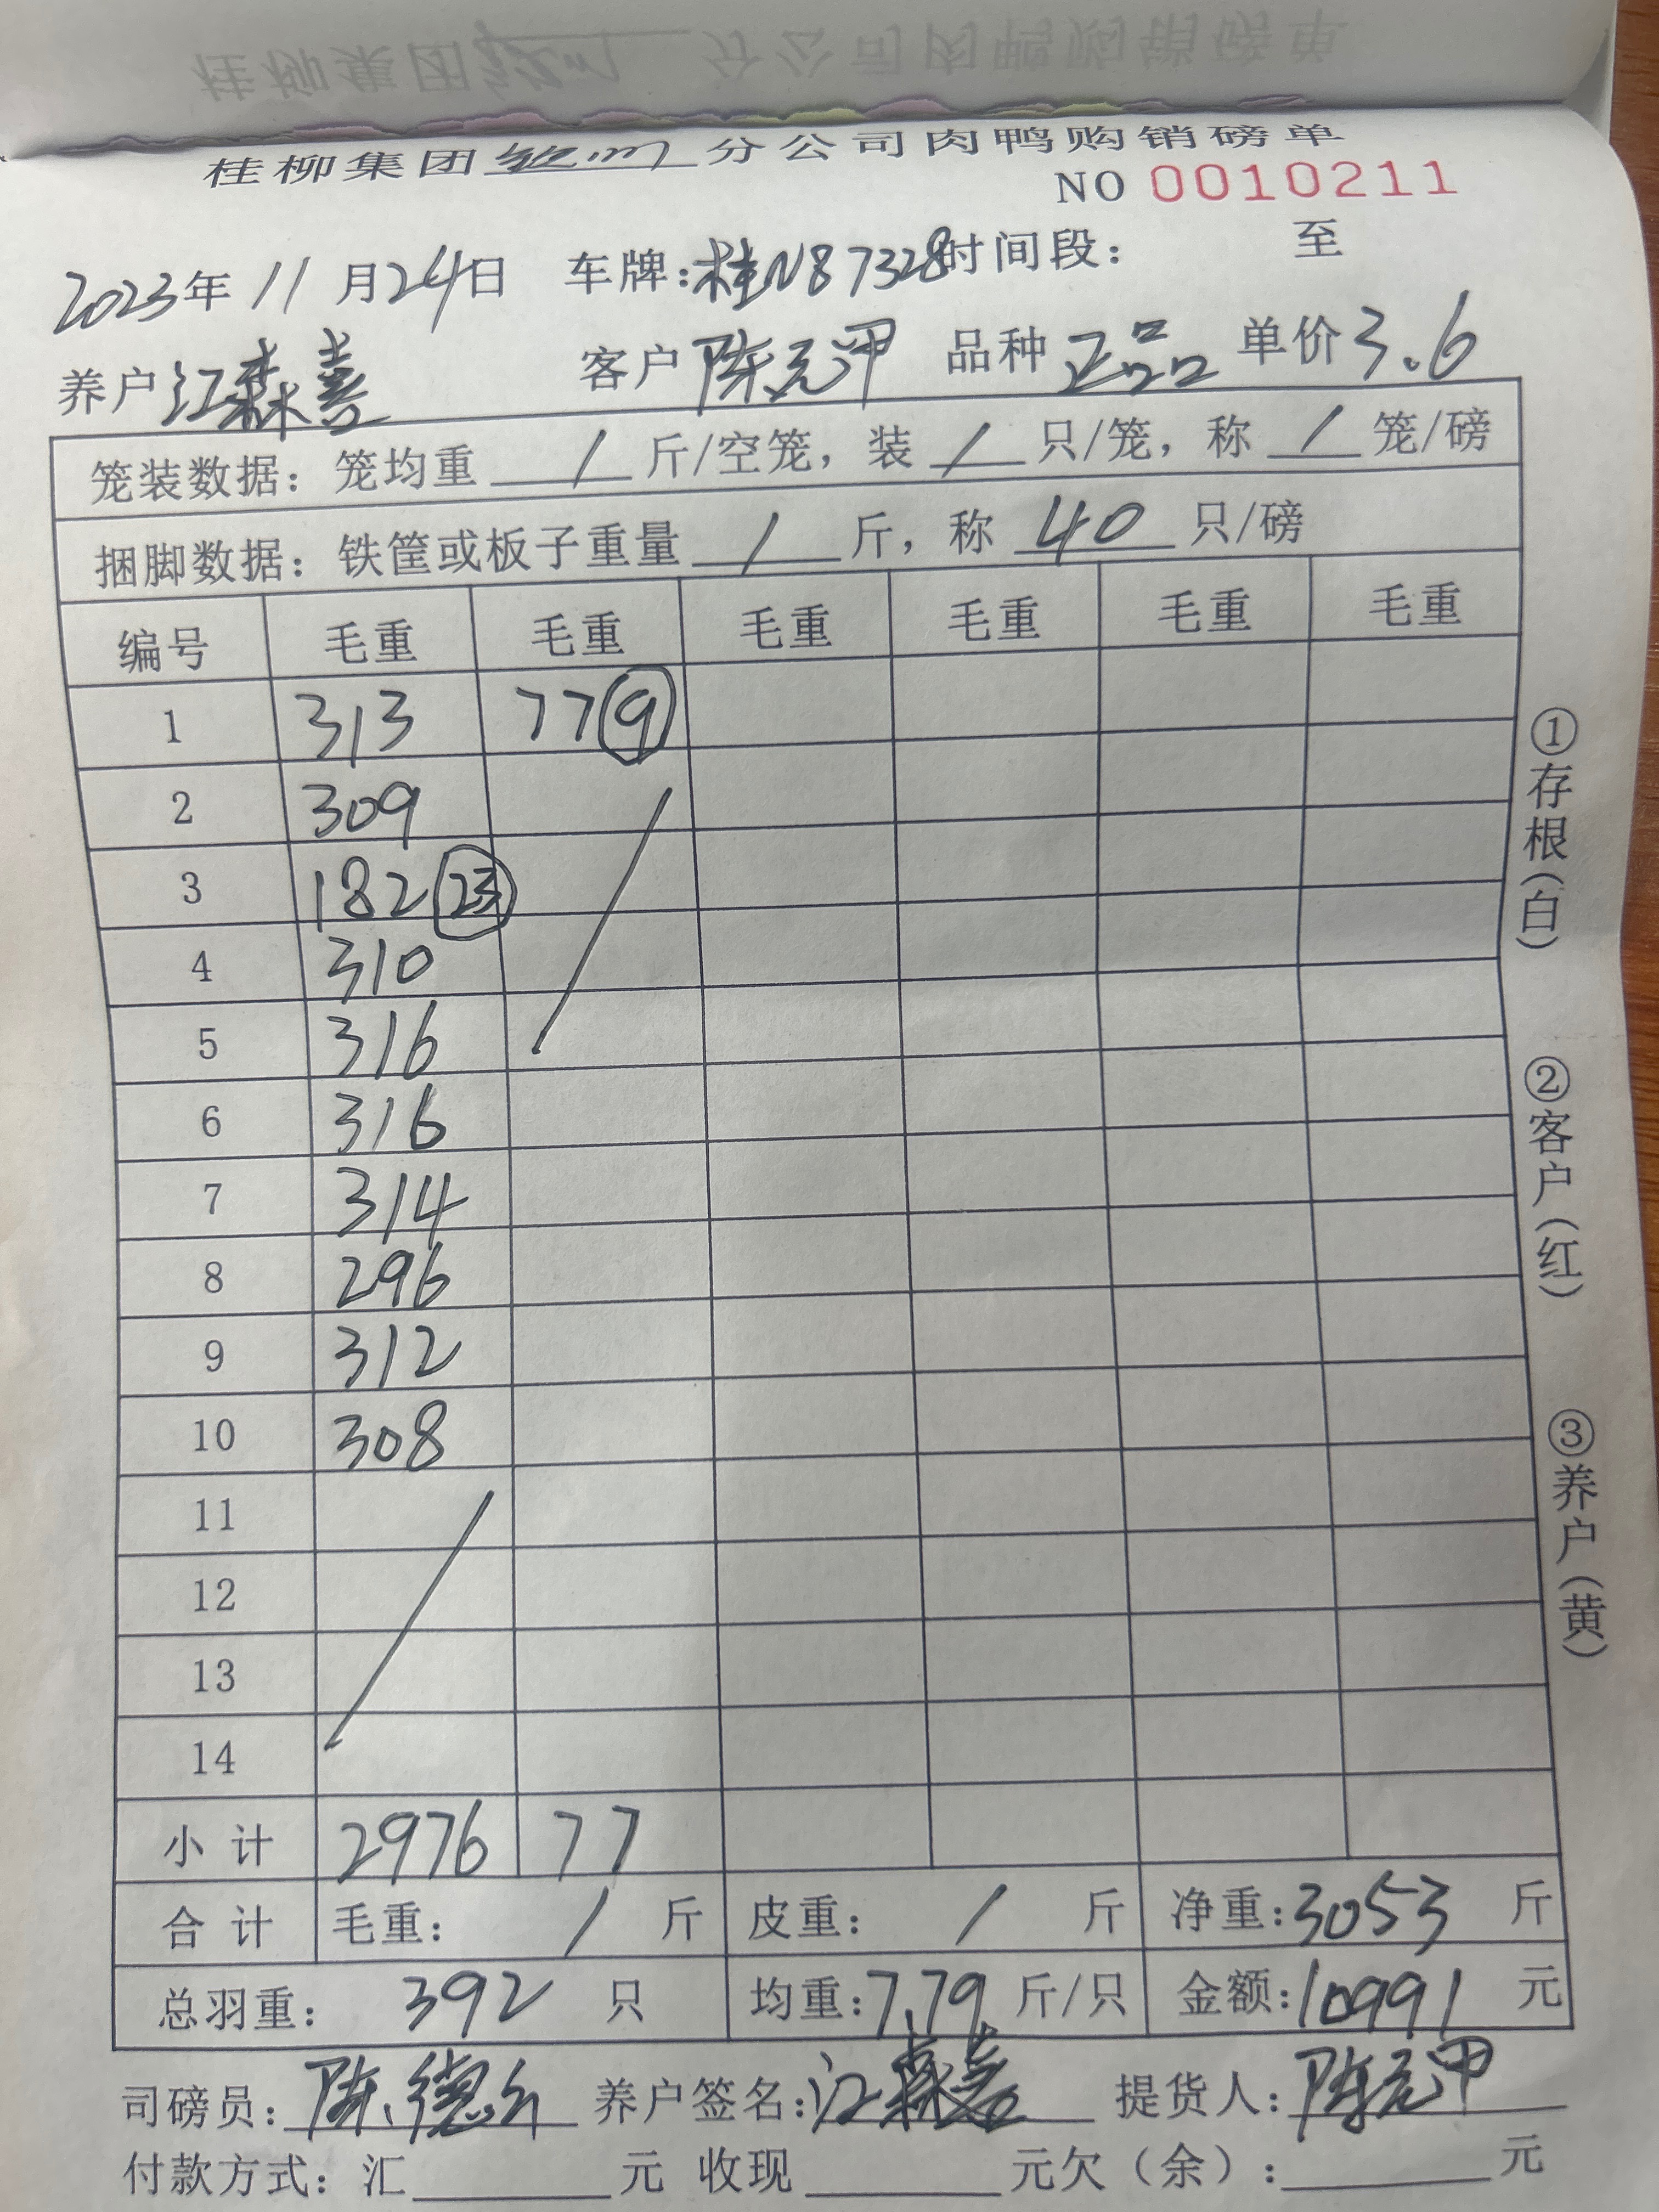 桂柳集团 分公司肉鸭购销磅单
NO 0010211
2023年 11 月 24日 车牌:桂N87328 时间段: 至
养户 江森善 客户 陈元甲 品种 正品 单价 3.6
笼装数据: 笼均重 / 斤/空笼, 装 / 只/笼, 称 / 笼/磅
捆脚数据: 铁筐或板子重量 / 斤, 称 40 只/磅
编号 毛重 毛重 毛重 毛重 毛重 毛重
1 313 77 ⑨
2 309
3 182 23
4 310
5 316
6 316
7 314
8 296
9 312
10 308
11
12
13
14
小 计 2976 77
合 计 毛重: / 斤 皮重: / 斤 净重:3053 斤
总羽重: 392 只 均重:7.79 斤/只 金额:10991 元
司磅员: 陈德 养户签名:江森善 提货人:陈元甲
付款方式:汇 元 收现 元欠(余): 元
①存根(白)
②客户(红)
③养户(黄)